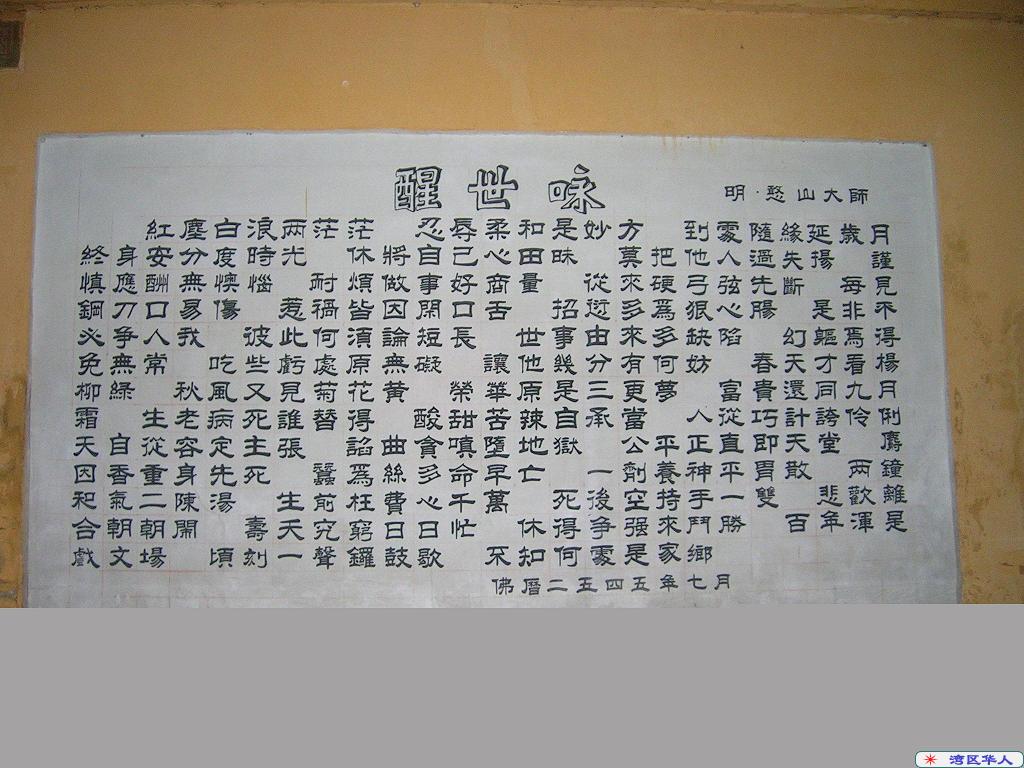 醒世咏
明·憨山大師
紅塵白浪两茫茫 忍辱柔和是妙方 到處隨緣延歲月
終身安分度時光 休將自己心田昧 莫把他人過失揚 謹
慎應酬無懊惱 耐煩做事好商量 從來硬弓弦先斷 每見
鋼刀口易傷 惹禍皆因閑口舌 招愆多爲狠心腸 是非不
必爭人我 彼此何須論短長 世事由來多缺陷 幻軀焉得
免無常 吃些虧處原無礙 讓他幾分有何妨 春天才看楊
柳綠 秋風又見菊花黃 榮華原是三更夢 富貴還同九月
霜 老病死生誰替得 酸甜苦辣自承當 人從巧計誇伶俐
天自從容定主張 諂曲貪嗔墮地獄 公平正直即天堂 麝
因香重身先死 蠶爲絲多命早亡 一劑養神平胃散 两鐘
和氣二陳湯 生前枉費心千萬 死後空持手一雙 悲歡離
合朝朝鬧 壽夭窮究日日忙 休得爭强來鬥勝 百年渾是
戲文場 頃刻一聲鑼鼓歇 不知何處是家鄉
佛曆二五四五年七月
湾区华人